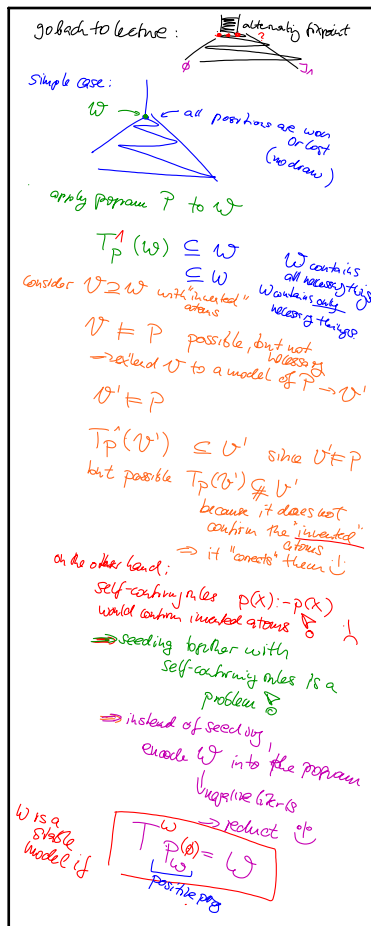 go back to lecture:
alternating fixpoint
?
∅
simple case:
W
all positions are won
or lost
(no draw)
apply program P to W
T_P^1 (W) ⊆ W
⊆ W
W contains
all necessary things
W contains only
necessary things
consider V ⊇ W with "invented"
atoms
V ⊨ P possible, but not
necessary
→ extend V to a model of P → V'
V' ⊨ P
T_P^1 (V') ⊆ V' since V' ⊨ P
but possible T_P(V') ⊊ V'
because it does not
confirm the "invented"
atoms
⇒ it "corrects" them !
on the other hand:
self-confirming rules p(X):-p(X)
would confirm invented atoms !
⇒ seeding together with
self-confirming rules is a
problem !
⇒ instead of seeding,
encode W into the program
negative literals
→ reduct
W is a
stable
model if
T^ω_{P_W}(∅) = W
positive prog